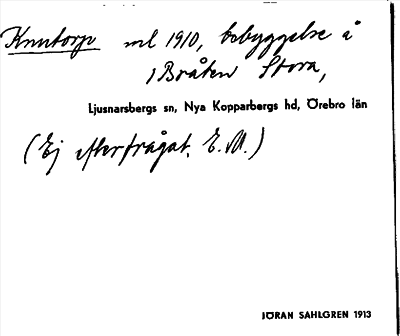 Knutorp ml 1910, bebyggelse å
1 Bråten Stora,
Ljusnarsbergs sn, Nya Kopparbergs hd, Örebro län
(Ej efterfrågat. E.M.)
JÖRAN SAHLGREN 1913